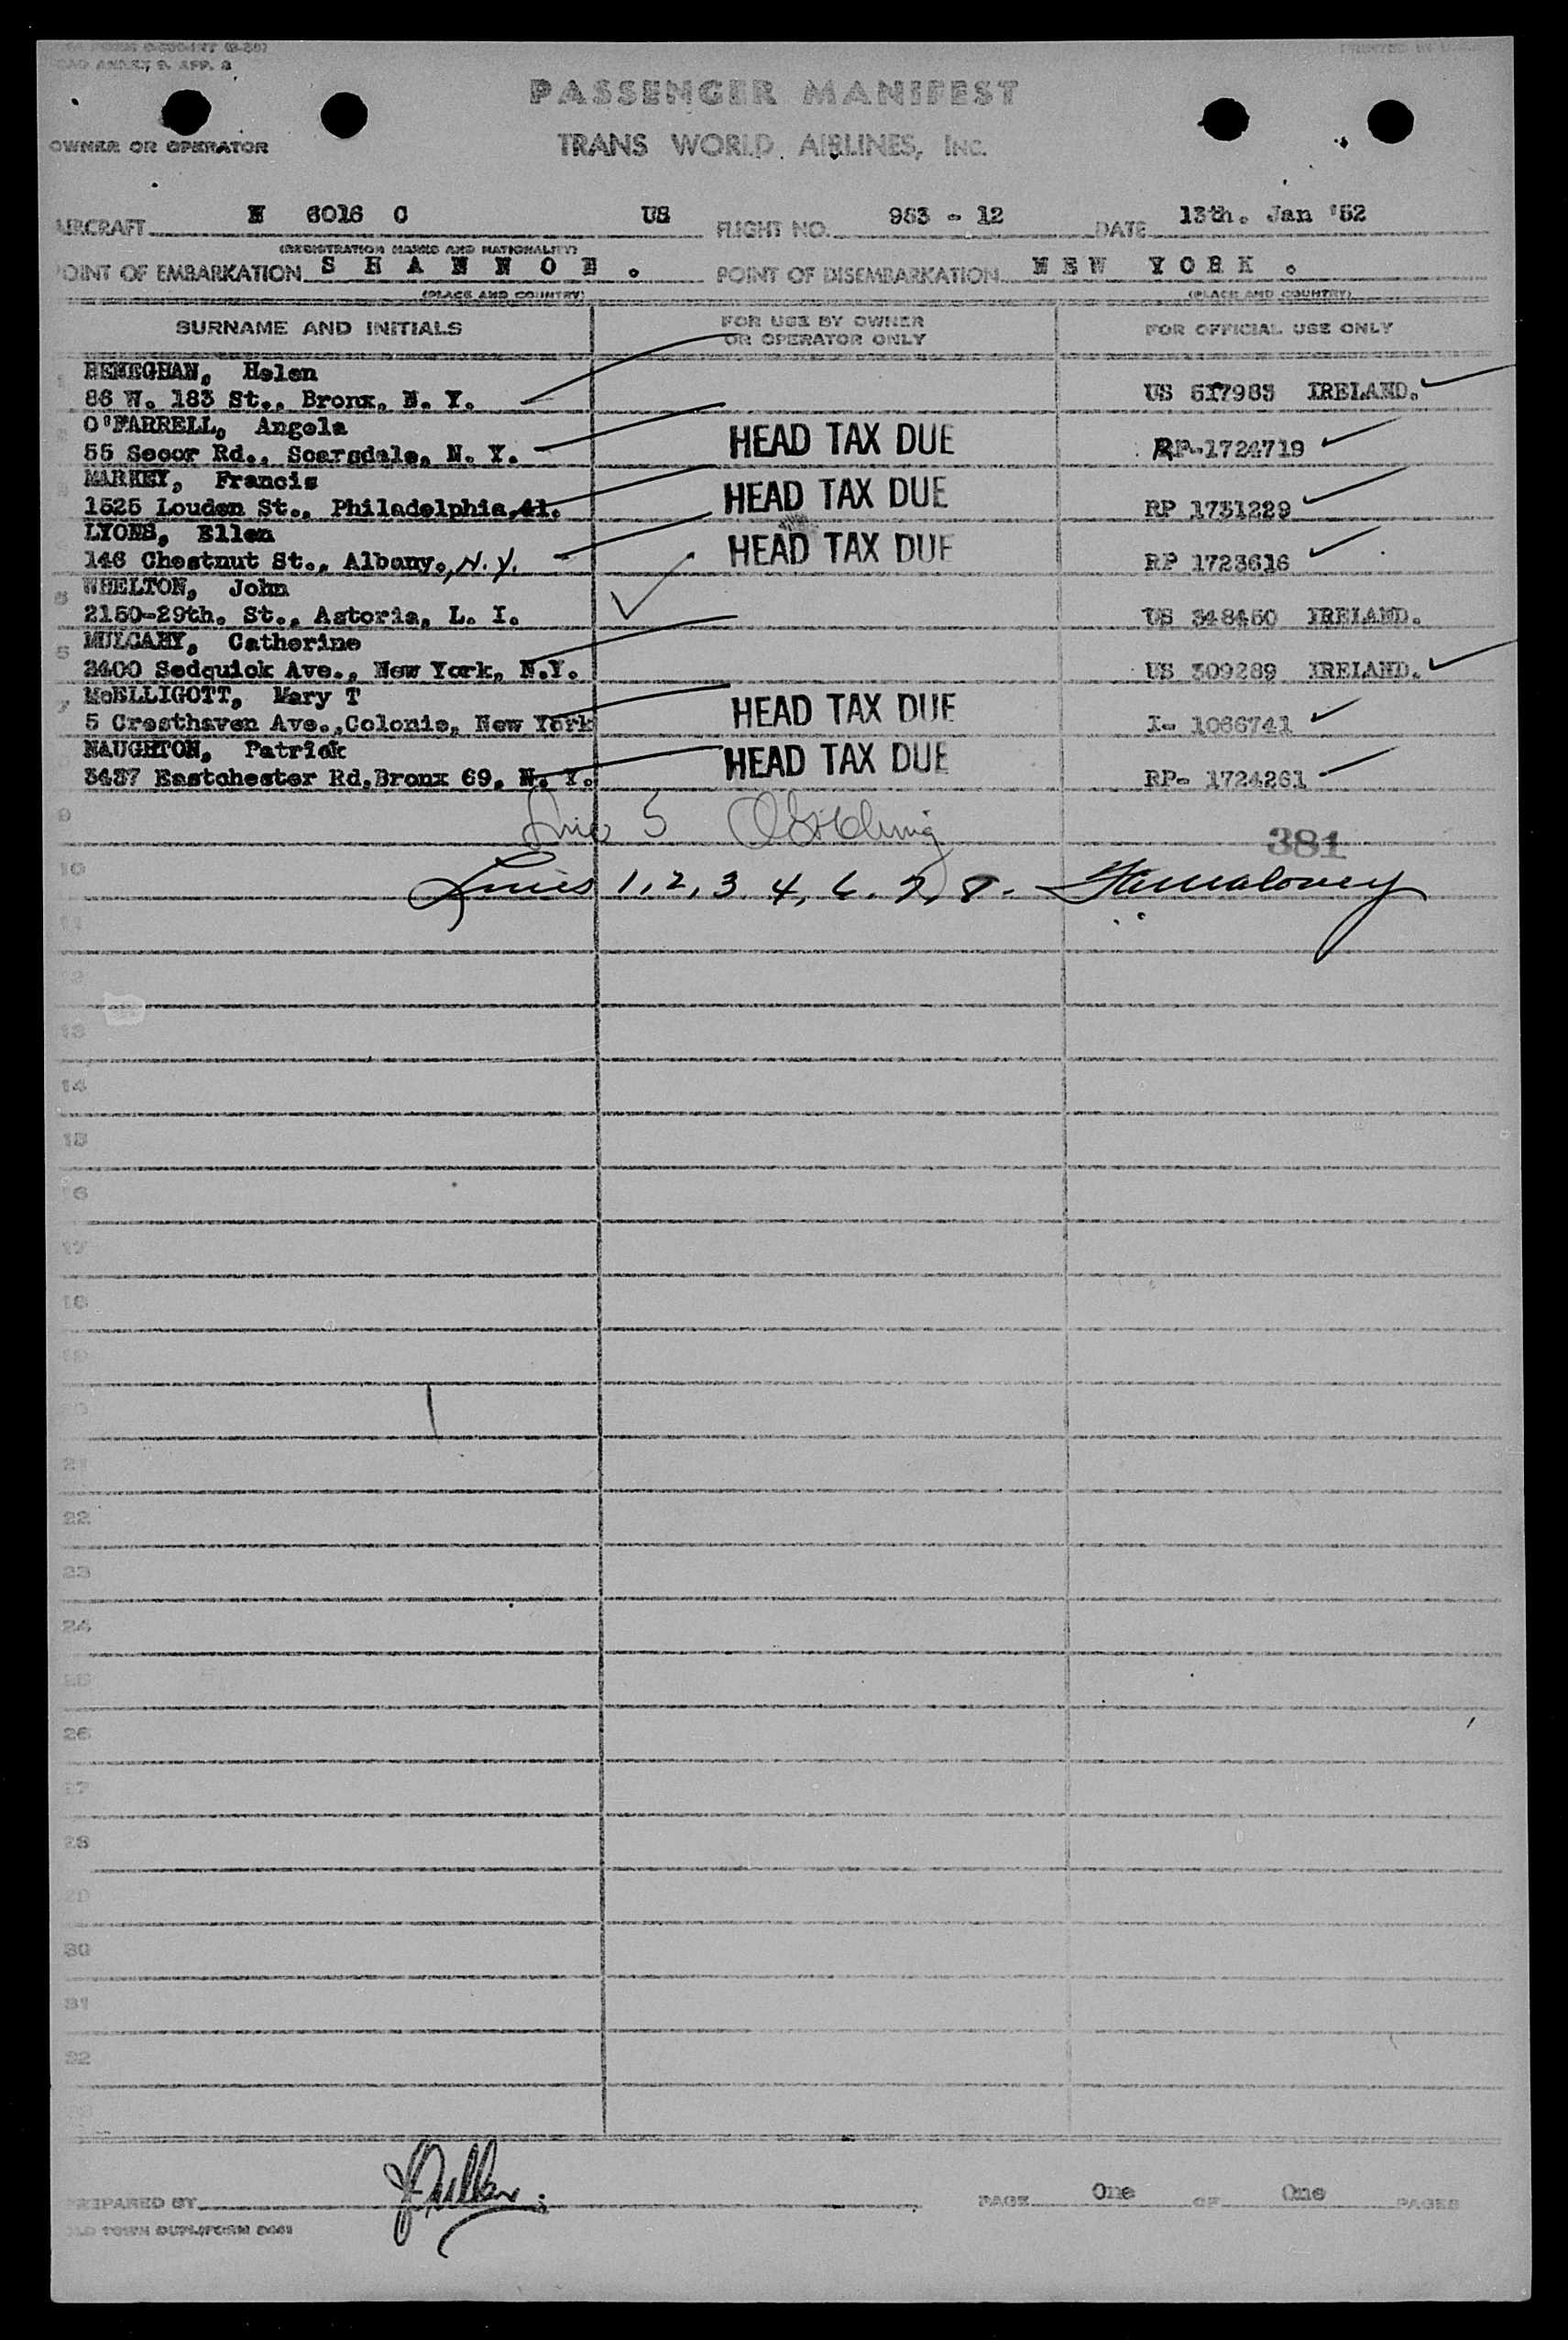 PASSENGER MANIFEST
OWNER OR OPERATOR
TRANS WORLD AIRLINES, INC.
AIRCRAFT N 6016 C US FLIGHT NO. 963 - 12 DATE 13th. Jan '52
(REGISTRATION MARKS AND NATIONALITY)
POINT OF EMBARKATION S H A N N O N . POINT OF DISEMBARKATION N E W Y O R K .
(PLACE AND COUNTRY) (PLACE AND COUNTRY)
SURNAME AND INITIALS FOR USE BY OWNER OR OPERATOR ONLY FOR OFFICIAL USE ONLY
1 HENEGHAN, Helen
86 W. 183 St., Bronx, N. Y. US 517983 IRELAND.
2 O'FARRELL, Angela
55 Secor Rd., Scarsdale, N. Y. HEAD TAX DUE RP-1724719
3 MARKEY, Francis
1525 Louden St., Philadelphia,41. HEAD TAX DUE RP 1731229
LYONS, Ellen
146 Chestnut St., Albany., N.Y. HEAD TAX DUE RP 1723616
5 WHELTON, John
2150-29th. St., Astoria, L. I. US 348450 IRELAND.
6 MULCAHY, Catherine
2400 Sedquick Ave., New York, N.Y. US 309289 IRELAND.
7 McELLIGOTT, Mary T
5 Cresthaven Ave.,Colonie, New York HEAD TAX DUE I- 1066741
NAUGHTON, Patrick
3437 Eastchester Rd.Bronx 69, N. Y. HEAD TAX DUE RP- 1724261
9 Line 5
381
10 Lines 1, 2, 3, 4, 6, 7, 8 -
11
12
13
14
15
16
17
18
19
20
21
22
23
24
25
26
27
28
29
30
31
32
PREPARED BY PAGE One OF One PAGES
OLD TOWN DUPLIFORM